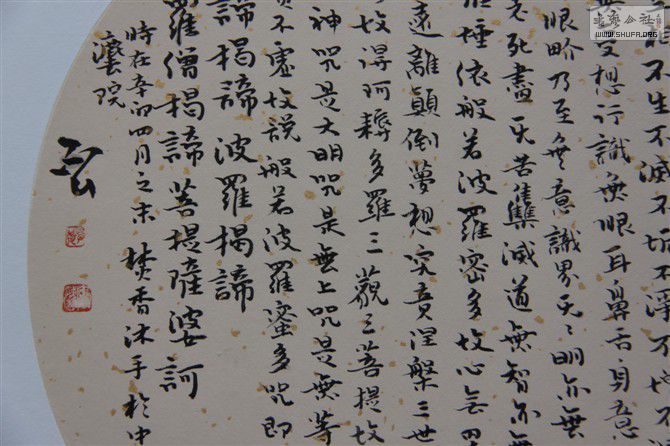 不生不滅不垢不淨不增
受想行識無眼耳鼻舌身意
眼畍乃至無意識界无〻明亦無
老死盡无苦集滅道無智亦無
埵依般若波羅密多故心無罣
遠離顛倒夢想究竟涅槃三世
故得阿耨多羅三藐三菩提故
神咒是大明咒是無上咒是無等
實不虛故說般若波羅蜜多咒即
諦揭諦波羅揭諦
羅僧揭諦菩提薩婆訶
時在辛卯四月之末焚香沐手於中
院
書藝公社
WWW.SHUFA.ORG